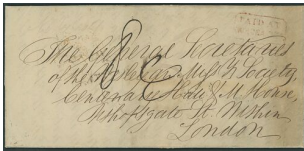 PAID AT
8
The General Secretaries
of the Wesleyan Miss.y Society
Centenary Hall & M. House
Bishopsgate St. Within
London